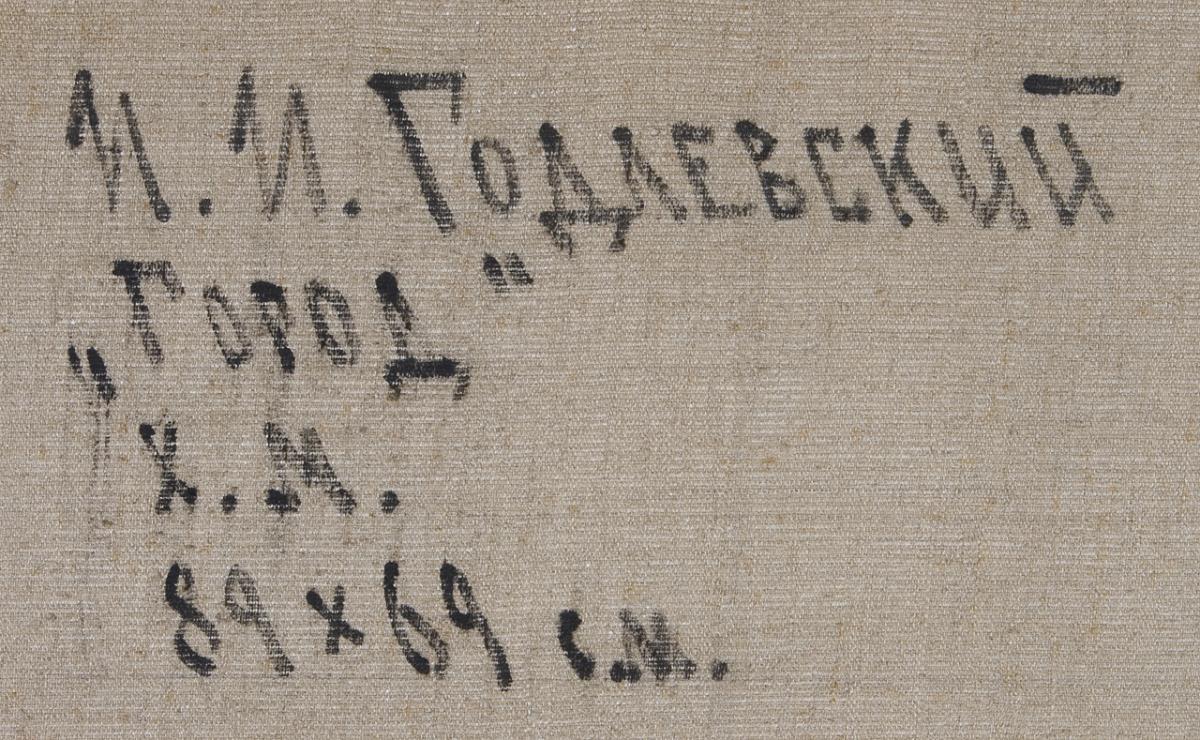 И. И. Годлевский
„Город"
х. м.
89 х 69 с.м.